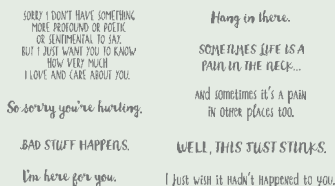 SORRY I DON'T HAVE SOMETHING
MORE PROFOUND OR POETIC
OR SENTIMENTAL TO SAY,
BUT I JUST WANT YOU TO KNOW
HOW VERY MUCH
I LOVE AND CARE ABOUT YOU.
So sorry you're hurting.
BAD STUFF HAPPENS.
I'm here for you.
Hang in there.
SOMETIMES LIFE IS A
PAIN IN THE NECK...
and sometimes it's a pain
in other places too.
WELL, THIS JUST STINKS.
I Just wish it hadn't happened to you.